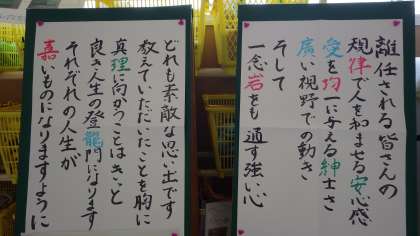 離任される皆さんの
規律で人を和ませる安心感
愛を均一に与える紳士さ
広い視野での動き
そして
一念岩をも通す強い心
どれも素敵な思い出です
教えていただいたことを胸に
真理に向かうことはきっと
良き人生の登龍門になります
それぞれの人生が
嘉いものになりますように